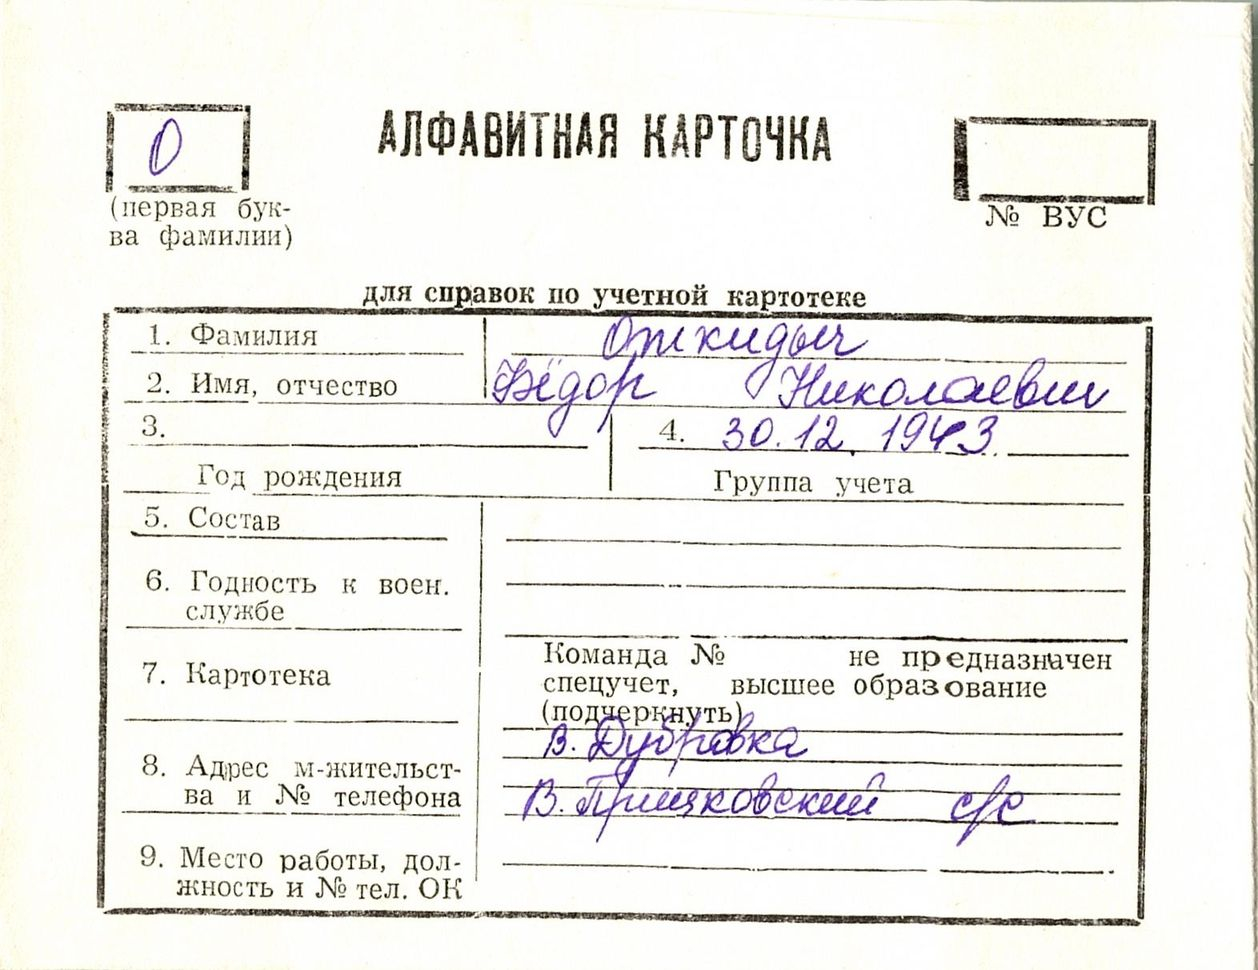 О
АЛФАВИТНАЯ КАРТОЧКА
(первая бук-
ва фамилии)
№ ВУС
для справок по учетной картотеке
1. Фамилия Откидыч
2. Имя, отчество Фёдор Николаевич
3. 4. 30.12.1943.
Год рождения Группа учета
5. Состав
6. Годность к воен.
службе
7. Картотека
Команда № не предназначен
спецучет, высшее образование
(подчеркнуть)
8. Адрес м-жительст-
ва и № телефона
в. Дубровка
В. с/с
9. Место работы, дол-
жность и № тел. ОК